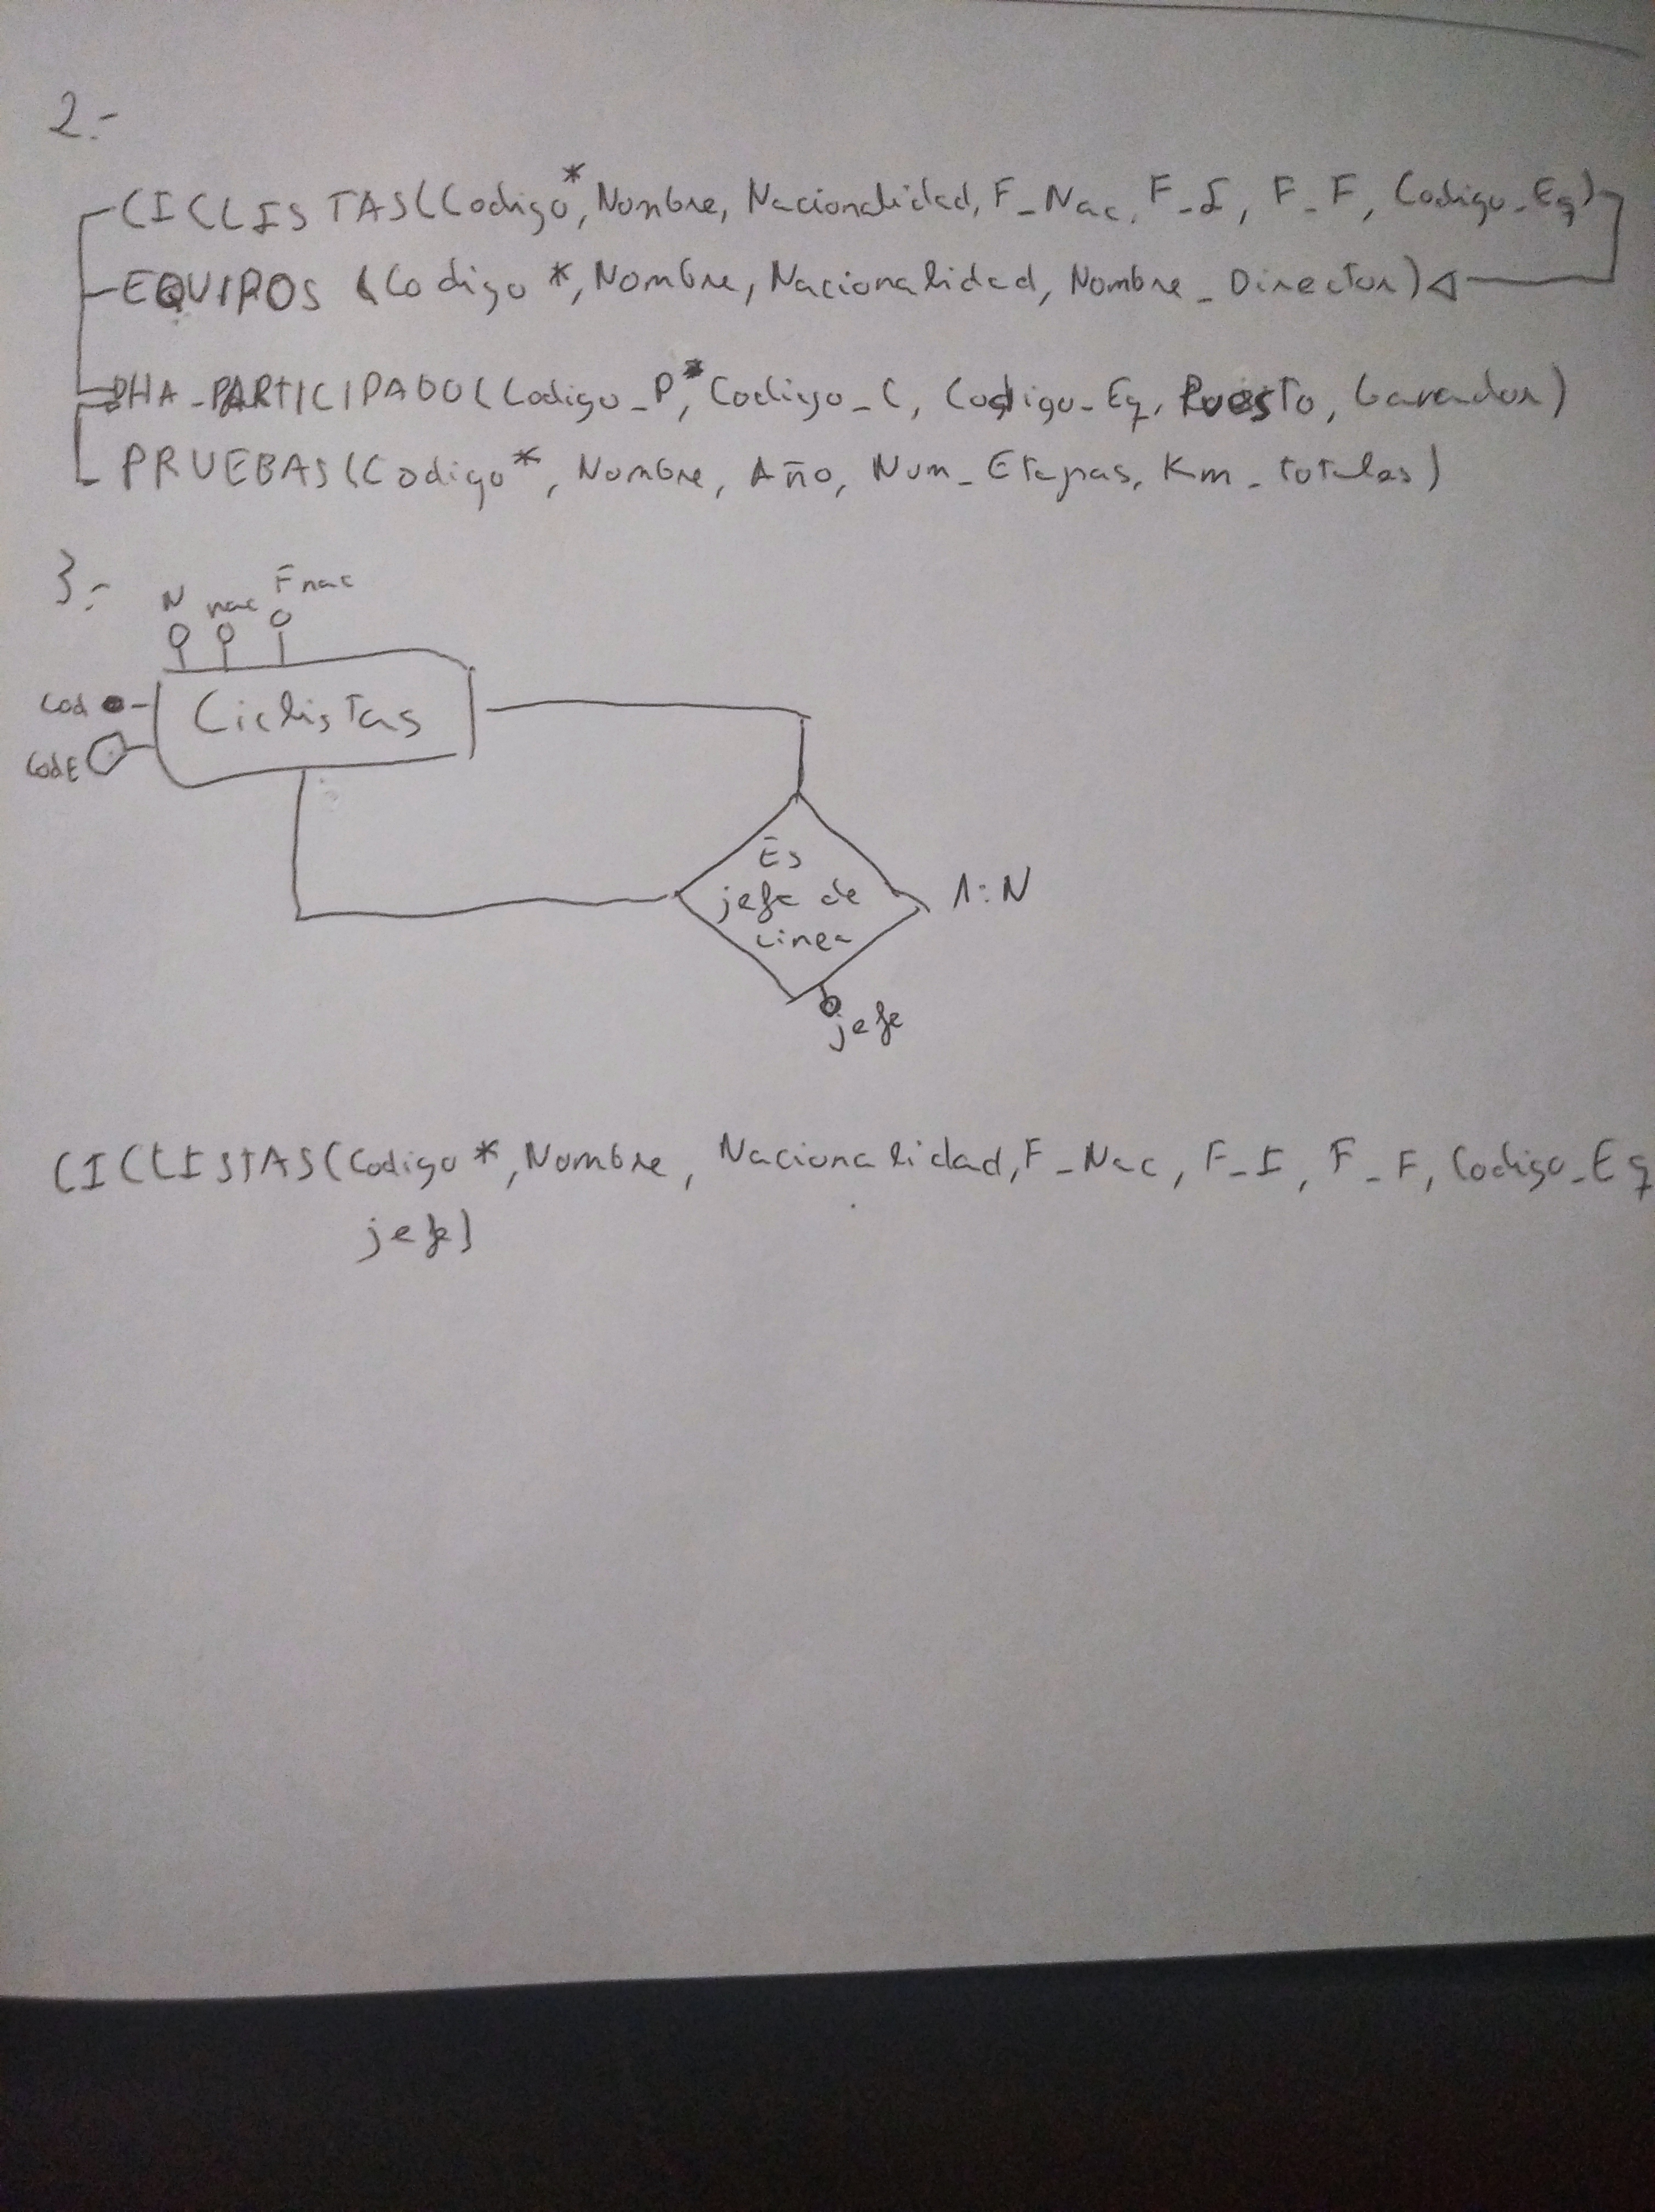 2.-
CICLISTAS(Codigo*, Nombre, Nacionalidad, F_Nac, F_I, F_F, Codigo_Eq)
EQUIPOS (Codigo*, Nombre, Nacionalidad, Nombre_Director)
HA_PARTICIPADO(Codigo_P*, Codigo_C, Codigo_Eq, Puesto, Ganador)
PRUEBAS(Codigo*, Nombre, Año, Num_Etapas, Km_totales)
3.-
N nac Fnac
Cod
Ciclistas
CodE
Es
jefe de
Linea
1:N
jefe
CICLISTAS(Codigo*, Nombre, Nacionalidad, F_Nac, F_I, F_F, Codigo_Eq
jefe)